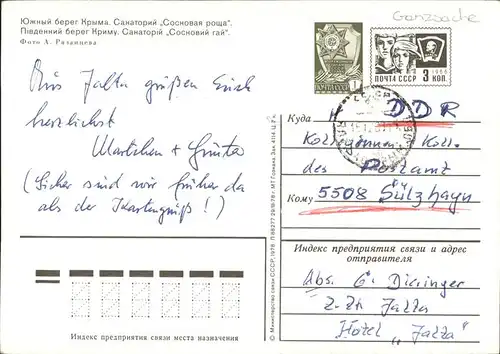 Южный берег Крыма. Санаторий „Сосновая роща“.
Південний берег Криму. Санаторій „Сосновий гай“.
Фото А. Рязанцева
Ganzsache
ПОЧТА СССР 1
ПОЧТА СССР 1966
3 КОП.
Aus Jalta grüßen Euch
herzlichst
+ Günter
(Sicher sind wir früher da
als der Kartengruß!)
Куда
DDR
Kolleginnen + Koll.
des Postamt
Кому 5508 Sülzhayn
Индекс предприятия связи и адрес
отправителя
Abs. G. Dieringer
z. Zt. Jalta
Hotel „Jalta"
Индекс предприятия связи места назначения
© Министерство связи СССР, 1978